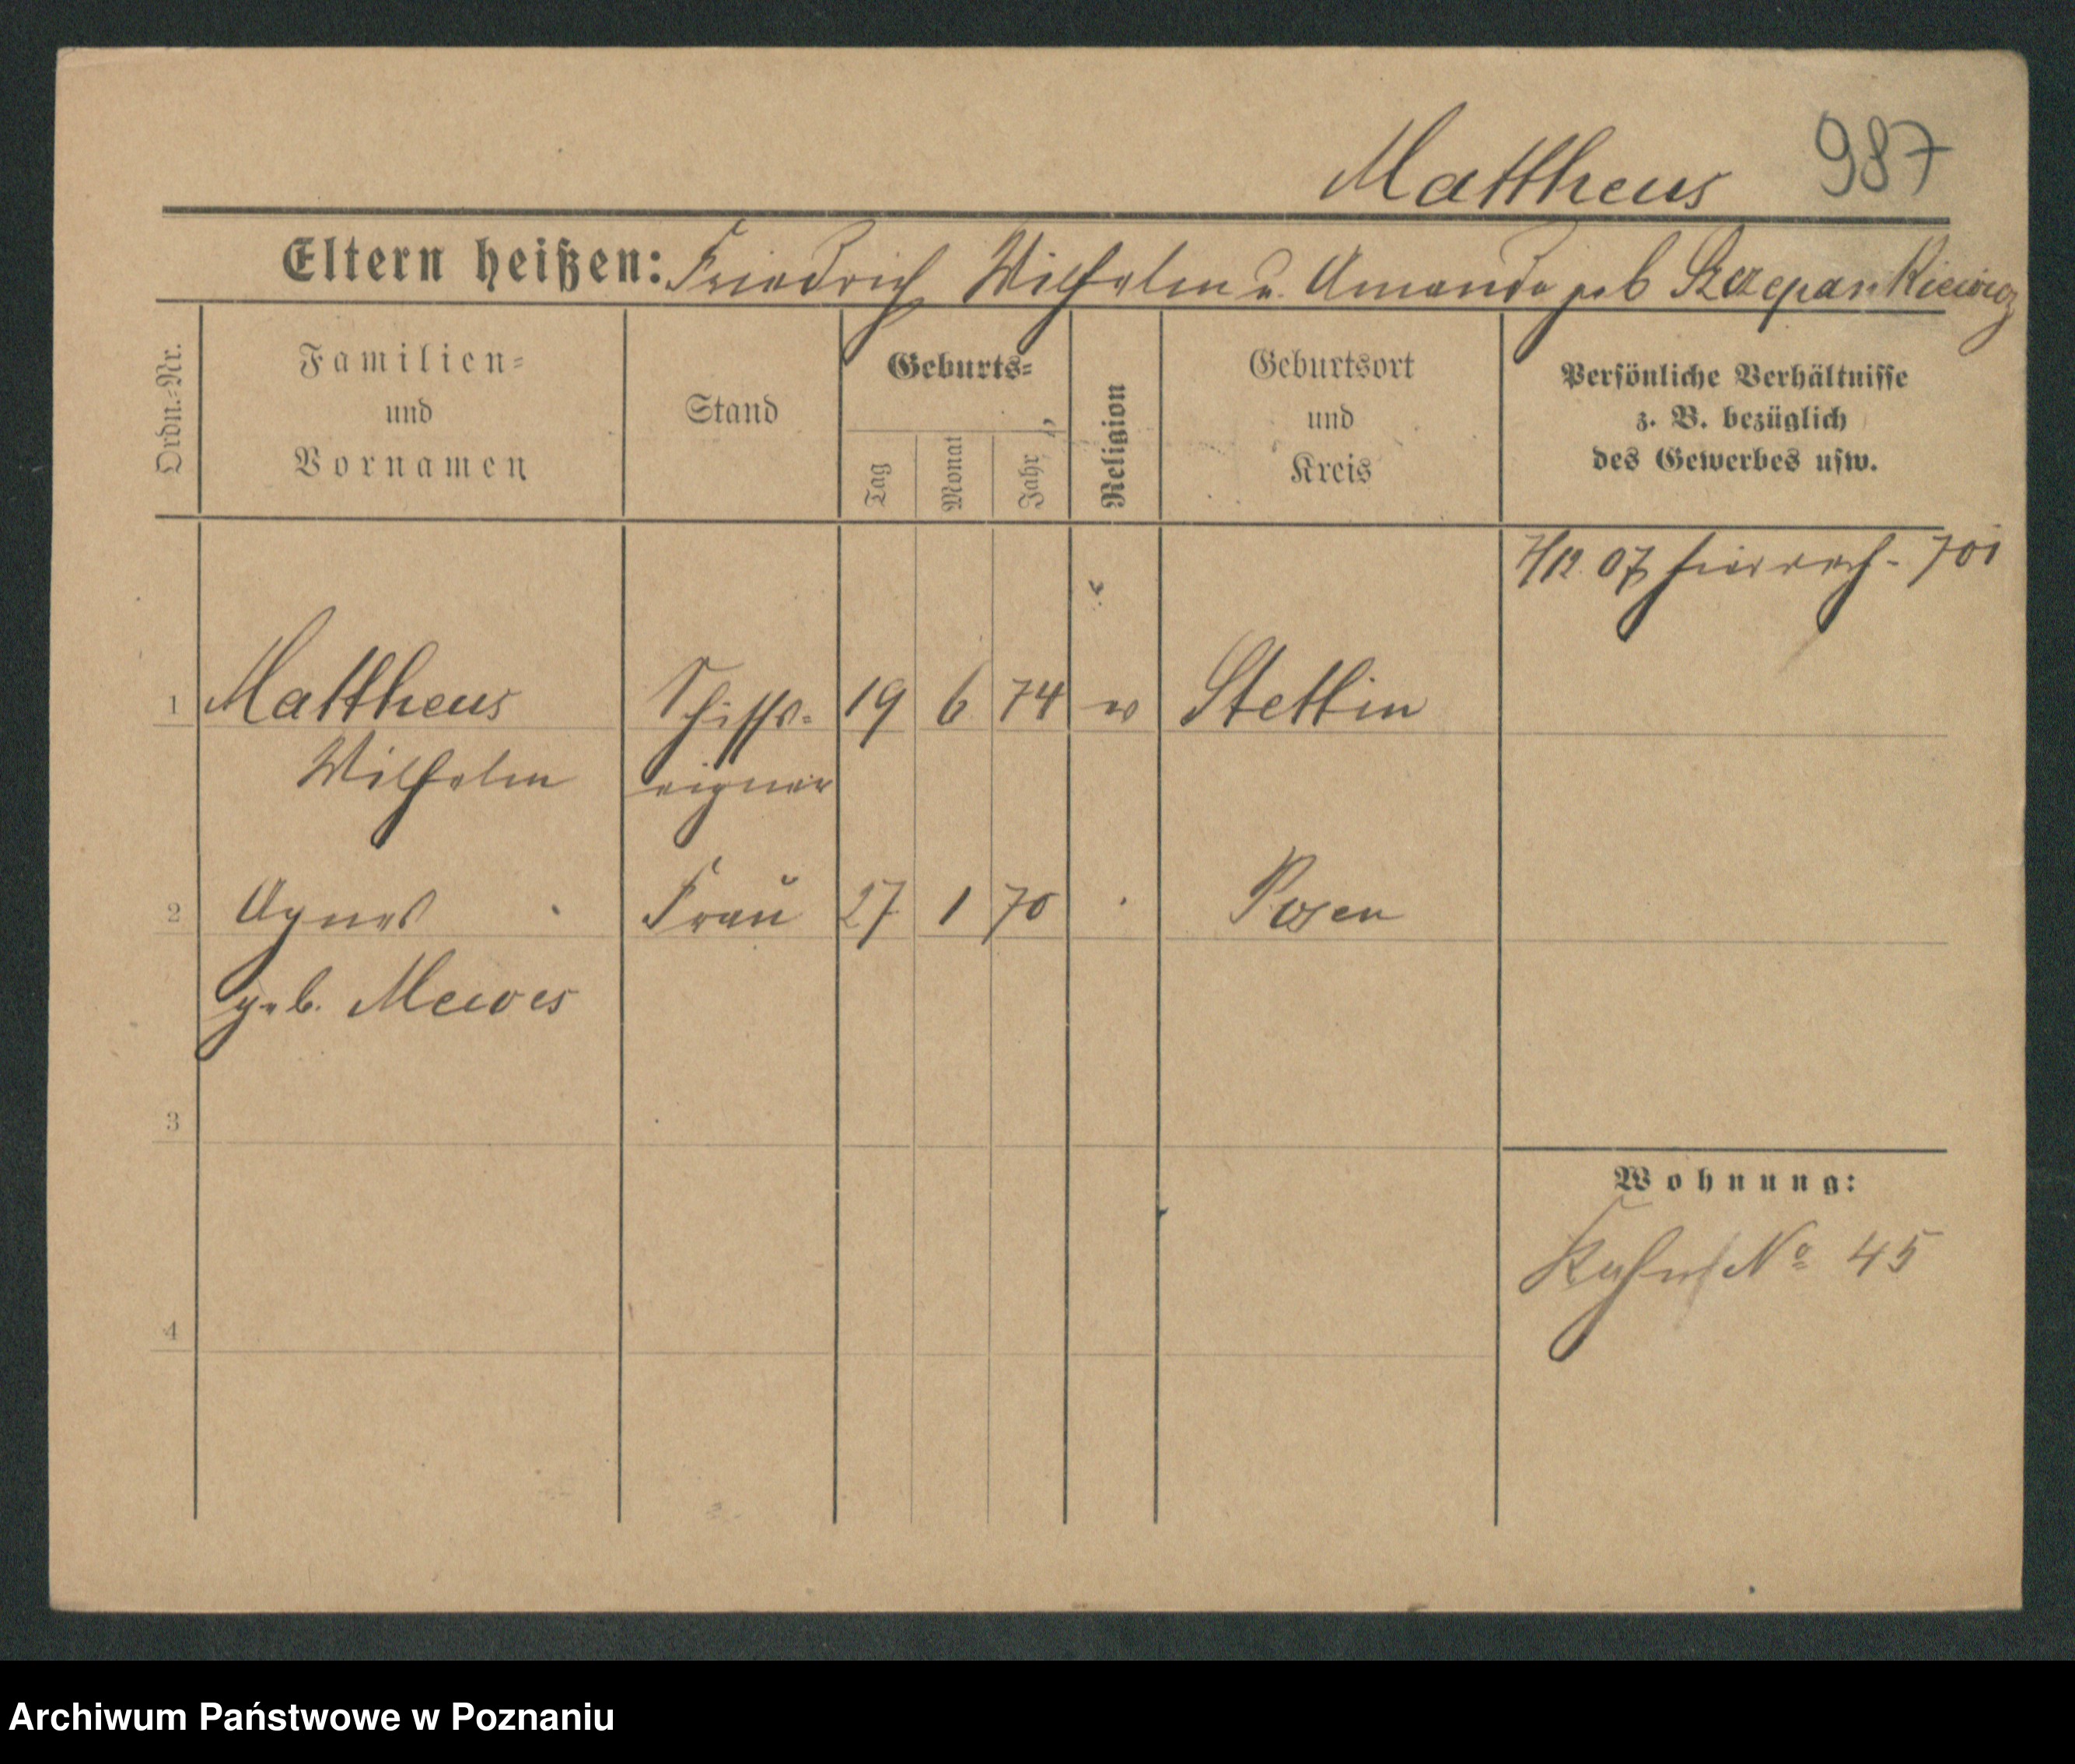 Mattheus 987
Eltern heißen: Friedrich Wilhelm u. Amanda geb Szczepankiewicz
Ordn.-Nr.
Familien-
und
Vornamen
Stand
Geburts-
Tag
Monat
Jahr
Religion
Geburtsort
und
Kreis
Persönliche Verhältnisse
z. B. bezüglich
des Gewerbes usw.
7/12. 07 701
1 Mattheus Schiffs- 19 6 74 Stettin
Wilhelm eigner
2 Agnes Frau 27 1 70 Posen
geb. Mewes
3
Wohnung:
Kahn No 45
4
Archiwum Państwowe w Poznaniu